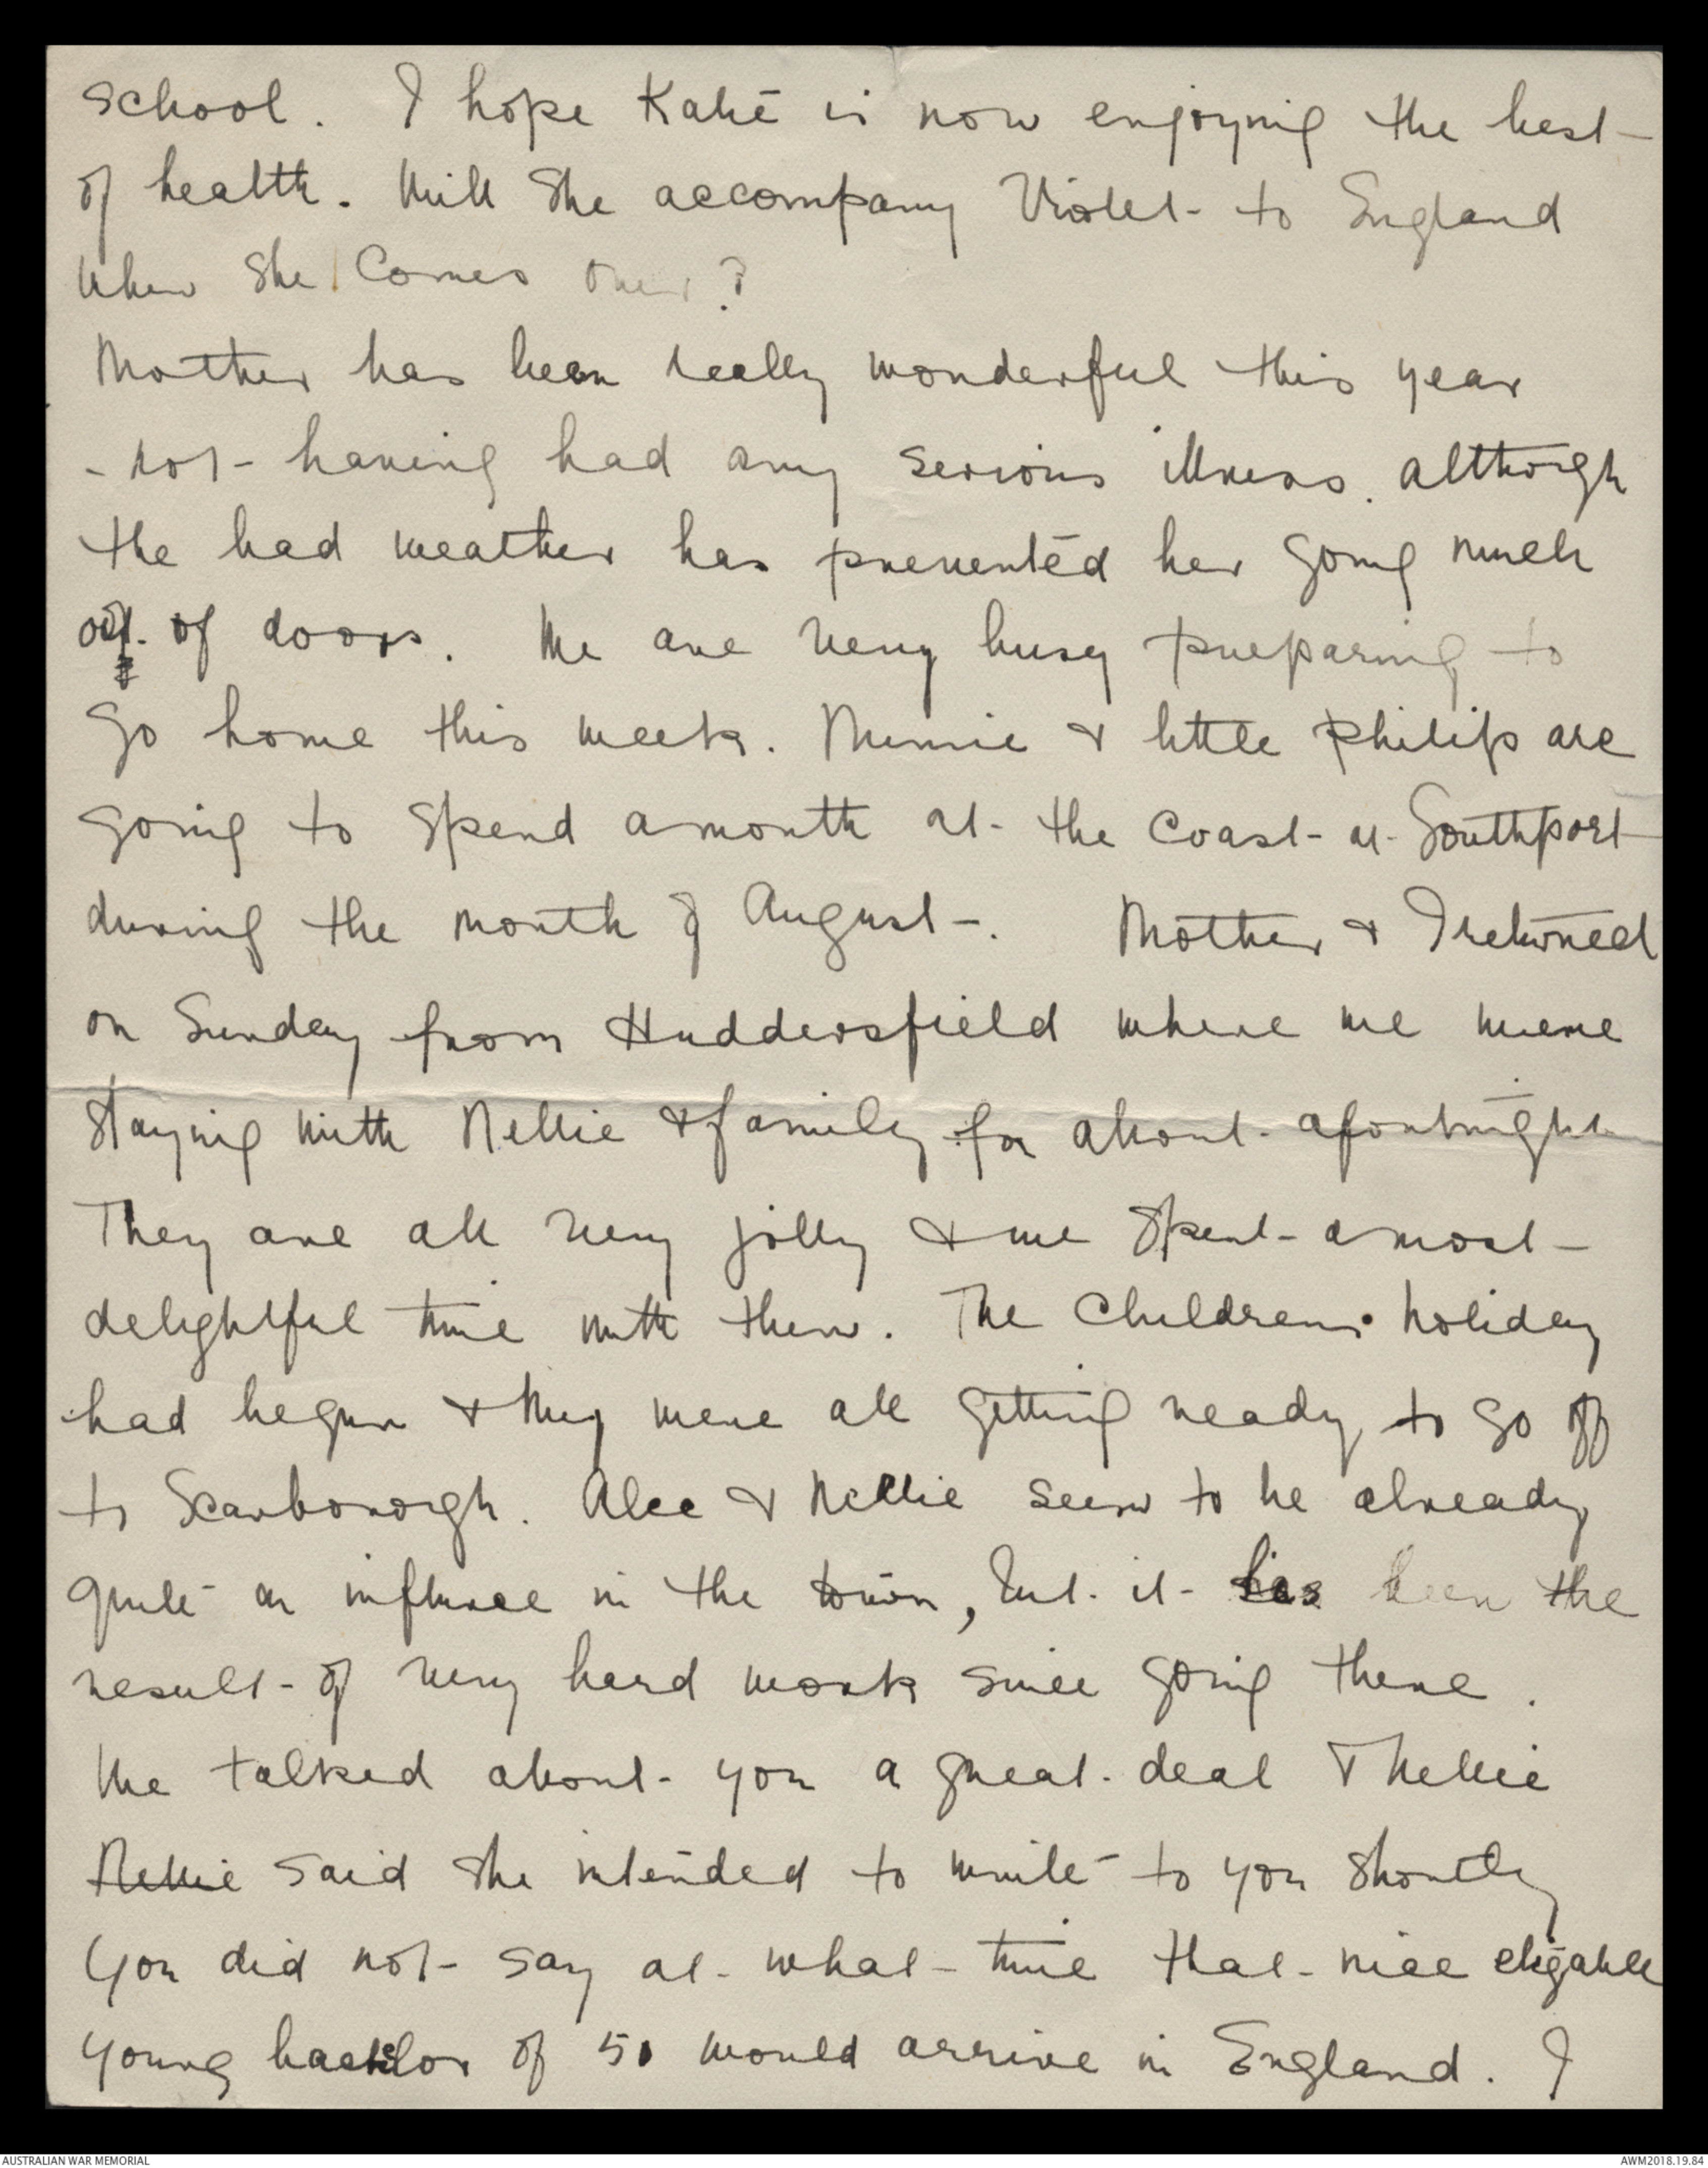 school. I hope Katie is now enjoying the best
of health. Will she accompany Violet to England
when she comes over?
Mother has been really wonderful this year
- not having had any serious illness. although
the bad weather has prevented her going much
out of doors. We are very busy preparing to
go home this week. Minnie & little Philip are
going to spend a month at the coast at Southport
during the month of August. Mother & I returned
on Sunday from Huddersfield where we were
staying with Nellie & family for about a fortnight
They are all very jolly & we spent a most
delightful time with them. The Childrens holiday
had begun & they were all getting ready to go off
to Scarborough. Alec & Nellie seem to be already
quite an influence in the town, but it has been the
result of very hard work since going there.
We talked about you a great deal & Nellie
Nellie said she intended to write to you shortly
You did not say at what time that nice eligable
young bachelor of 50 would arrive in England. I
AUSTRALIAN WAR MEMORIAL
AWM2018.19.84